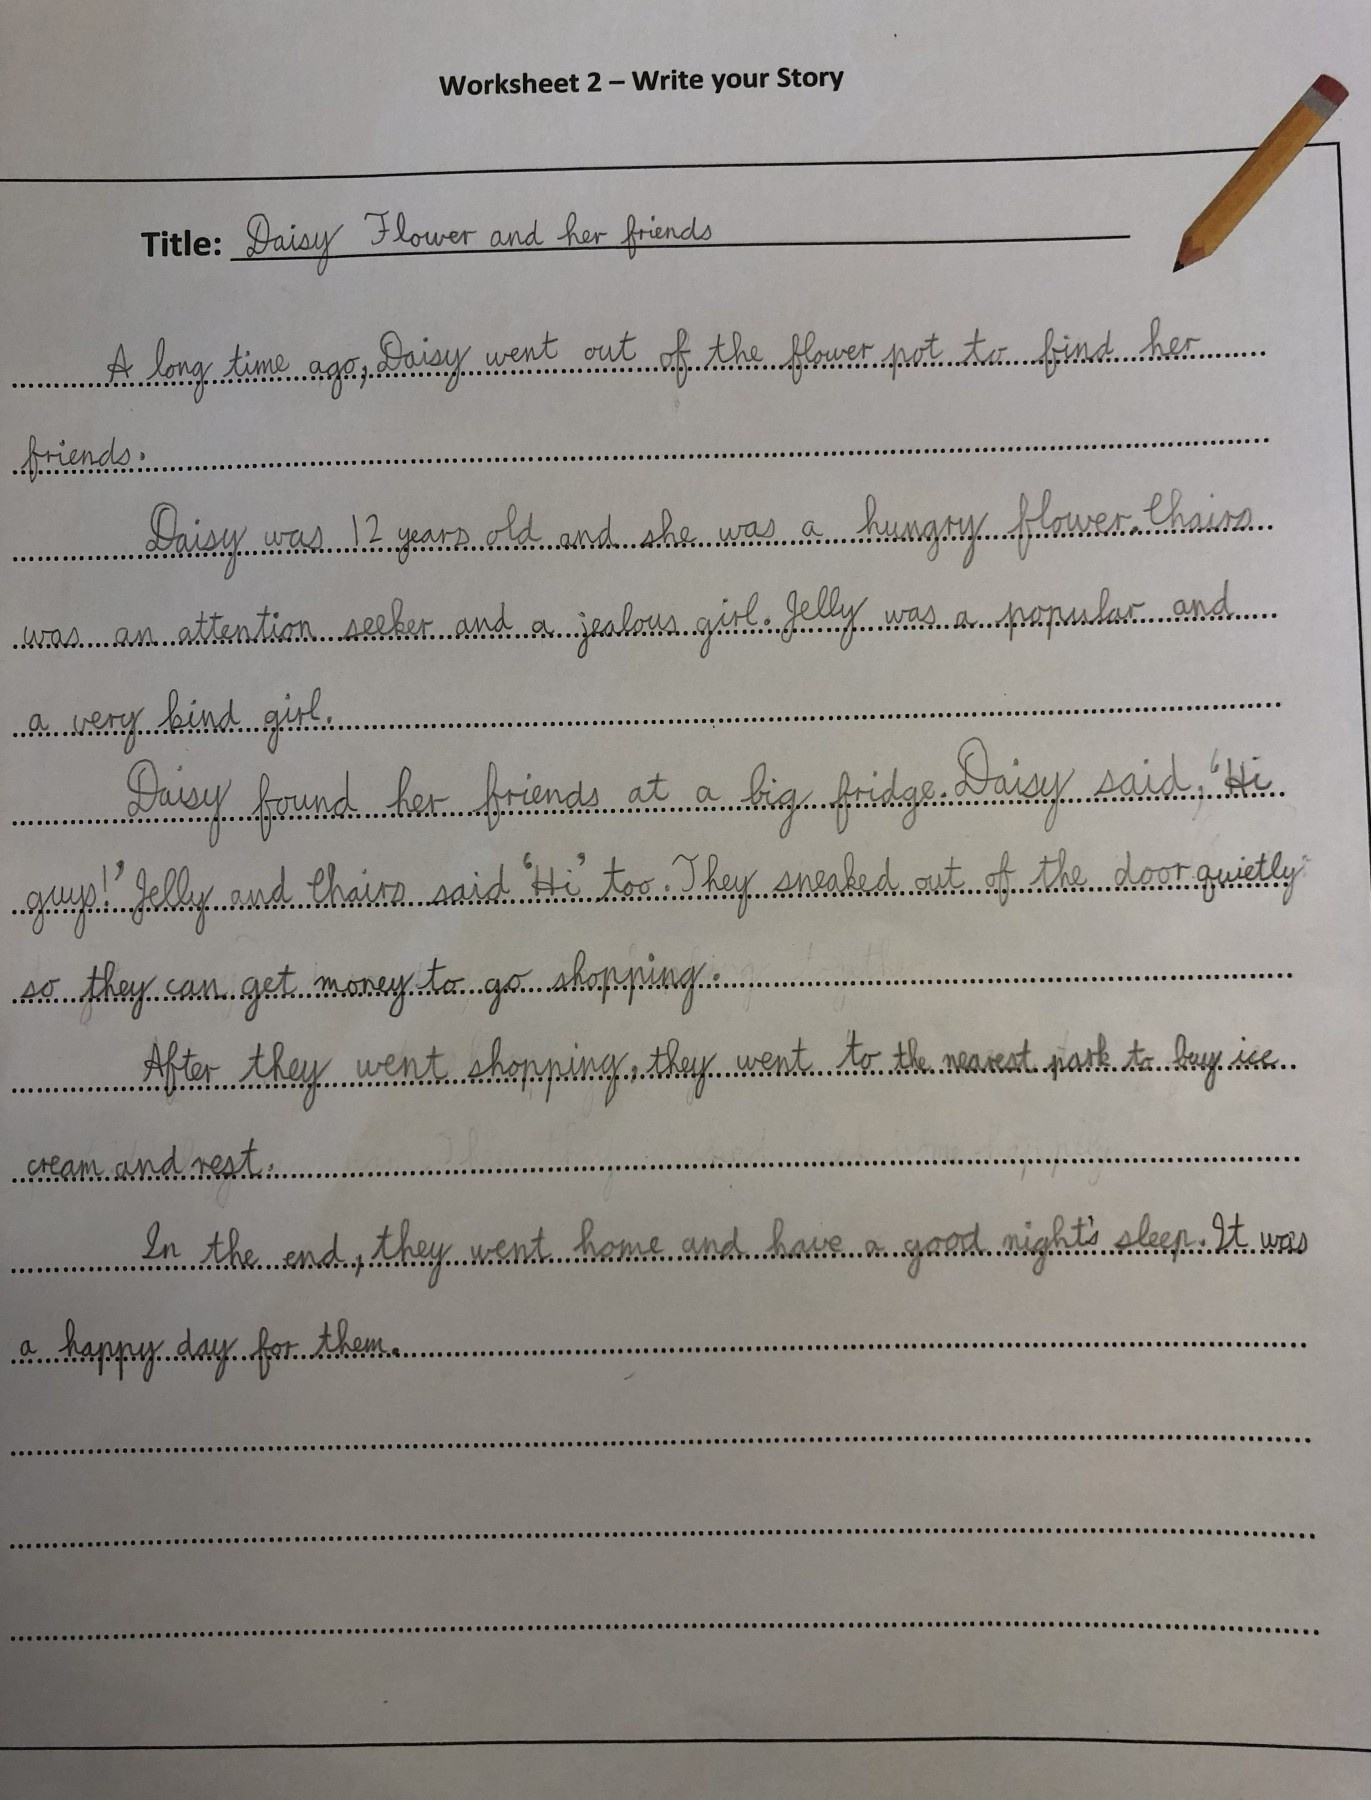 Worksheet 2 – Write your Story
Title: Daisy Flower and her friends
A long time ago, Daisy went out of the flower pot to find her
friends.
Daisy was 12 years old and she was a hungry flower. Chairs
was an attention seeker and a jealous girl. Jelly was a popular and
a very kind girl.
Daisy found her friends at a big fridge. Daisy said, 'Hi
guys!' Jelly and Chairs said 'Hi' too. They sneaked out of the door quietly
so they can get money to go shopping.
After they went shopping, they went to the nearest park to buy ice
cream and rest.
In the end, they went home and have a good night's sleep. It was
a happy day for them.